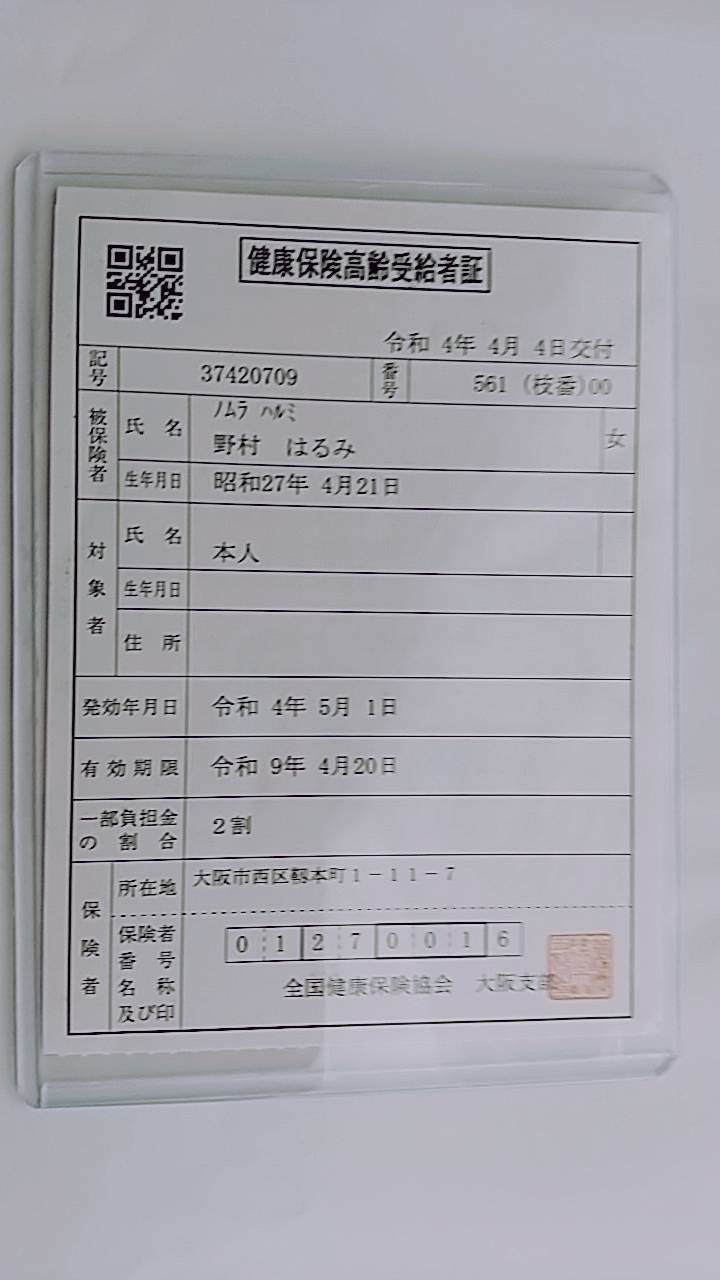 健康保険高齢受給者証
令和 4年 4月 4日交付
記号 37420709 番号 561 (枝番)00
被保険者
ノムラ ハルミ
氏 名 野村 はるみ 女
生年月日 昭和27年 4月21日
対象者
氏 名 本人
生年月日
住 所
発効年月日 令和 4年 5月 1日
有効期限 令和 9年 4月20日
一部負担金の割合 2割
保険者
所在地 大阪市西区靱本町1-11-7
保険者番号 01270016
名称及び印 全国健康保険協会 大阪支部